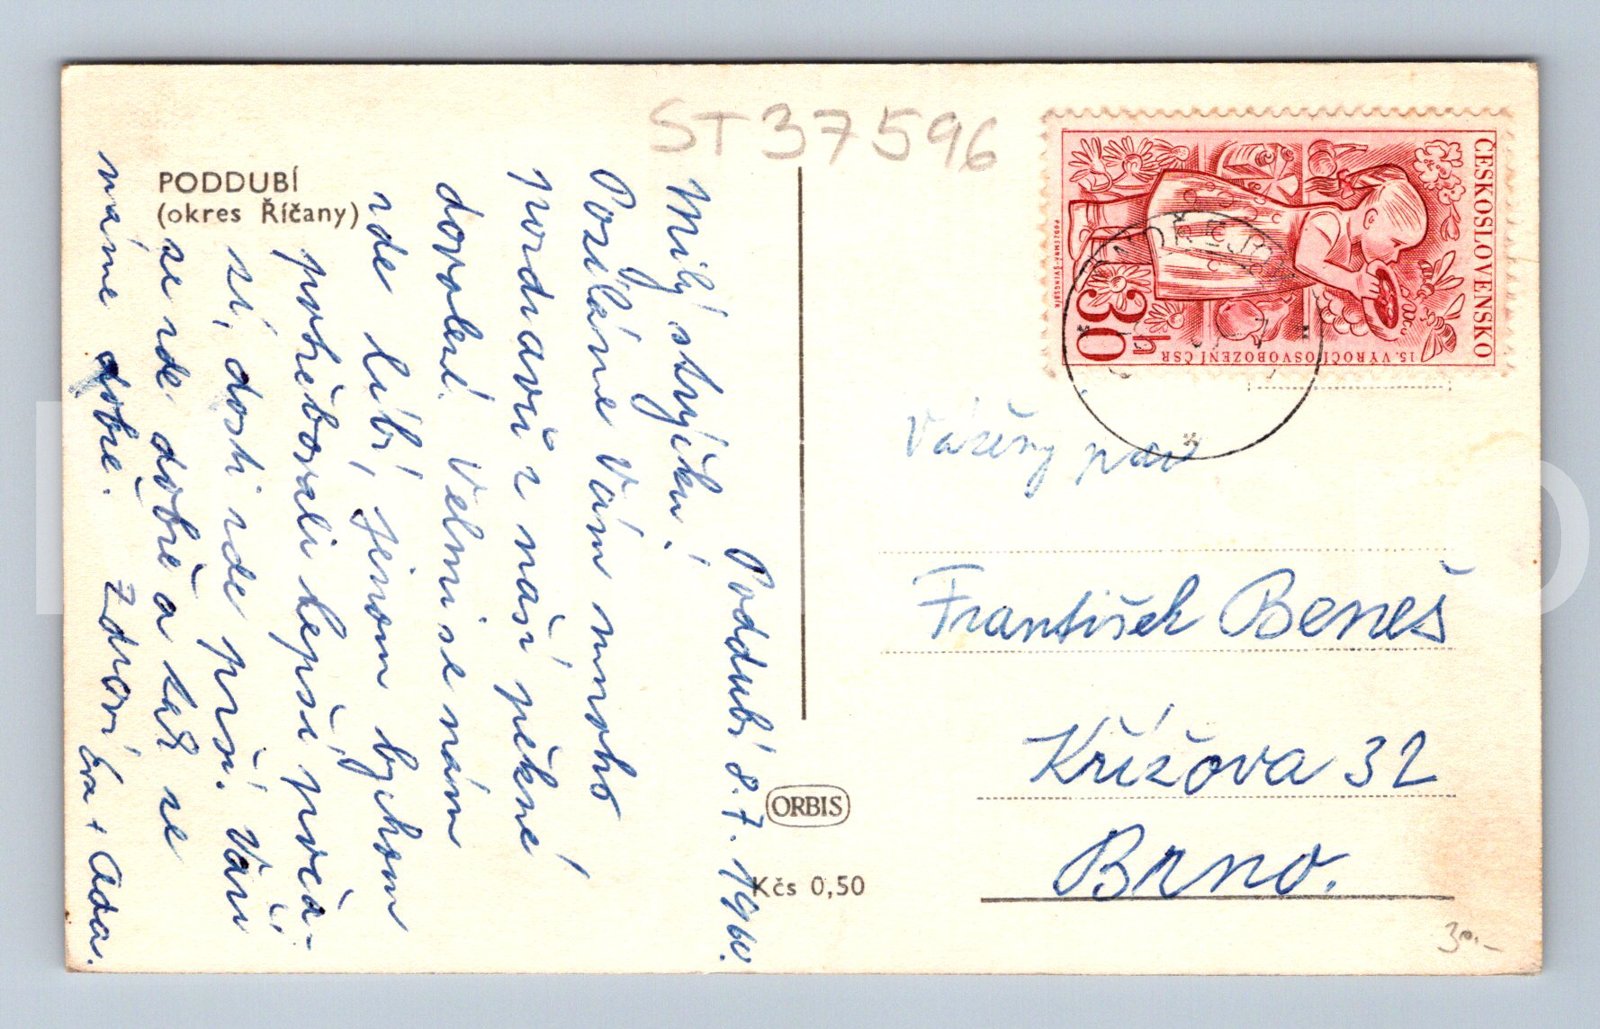 ST 37596
PODDUBÍ
(okres Říčany)
Poddubí 8. 7. 1960.
Milý strýčku!
Posíláme Vám mnoho
pozdravů z naší pěkné
dovolené. Velmi se nám
zde líbí, jenom bychom
potřebovali lepší počá-
sí, dosti zde prší. Vaří
se zde dobře a tak se
máme dobře. Zdraví Eva + Ada.
ORBIS
Kčs 0,50
ČESKOSLOVENSKO
15. VÝROČÍ OSVOBOZENÍ ČSR
30 h
Vážený pan
František Beneš
Křížova 32
Brno.
30,-